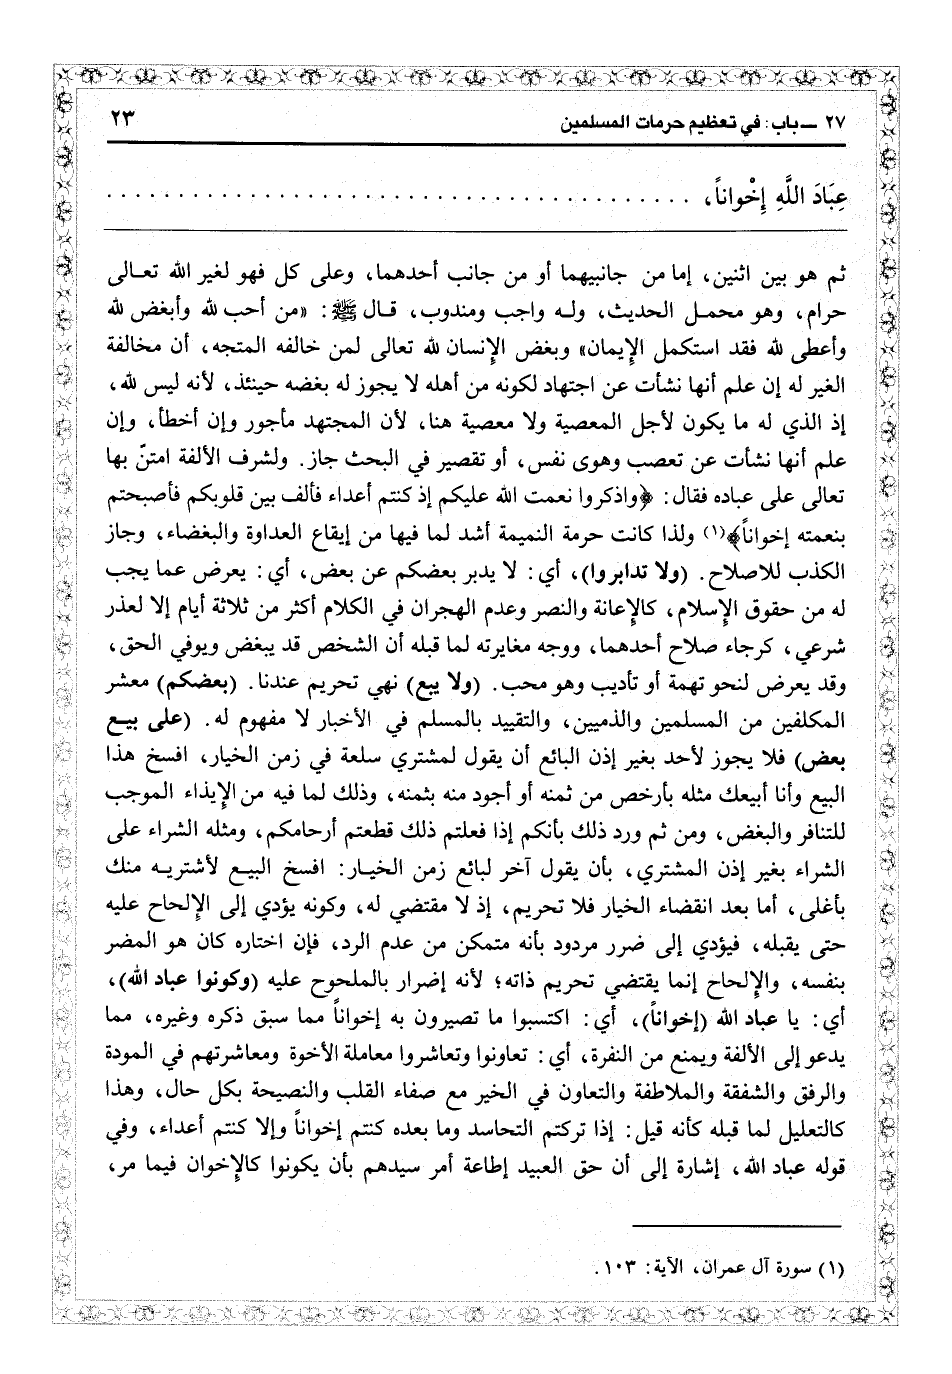 ٢٧ ــ باب: في تعظيم حرمات المسلمين
٢٣
عِبَادَ اللَّهِ إِخْواناً، . . . . . . . . . . . . . . . . . . . . . . . . . . . . . . . . . . . . . . . .
ثم هو بين اثنين، إما من جانبيهما أو من جانب أحدهما، وعلى كل فهو لغير الله تعالى
حرام، وهو محمل الحديث، وله واجب ومندوب، قال ﷺ: «من أحب لله وأبغض لله
وأعطى لله فقد استكمل الإيمان» وبغض الإنسان لله تعالى لمن خالفه المتجه، أن مخالفة
الغير له إن علم أنها نشأت عن اجتهاد لكونه من أهله لا يجوز له بغضه حينئذ، لأنه ليس لله،
إذ الذي له ما يكون لأجل المعصية ولا معصية هنا، لأن المجتهد مأجور وإن أخطأ، وإن
علم أنها نشأت عن تعصب وهوى نفس، أو تقصير في البحث جاز. ولشرف الألفة امتنّ بها
تعالى على عباده فقال: ﴿واذكروا نعمت الله عليكم إذ كنتم أعداء فألف بين قلوبكم فأصبحتم
بنعمته إخواناً﴾(١) ولذا كانت حرمة النميمة أشد لما فيها من إيقاع العداوة والبغضاء، وجاز
الكذب للاصلاح. (ولا تدابروا)، أي: لا يدبر بعضكم عن بعض، أي: يعرض عما يجب
له من حقوق الإسلام، كالإعانة والنصر وعدم الهجران في الكلام أكثر من ثلاثة أيام إلا لعذر
شرعي، كرجاء صلاح أحدهما، ووجه مغايرته لما قبله أن الشخص قد يبغض ويوفي الحق،
وقد يعرض لنحو تهمة أو تأديب وهو محب. (ولا يبع) نهي تحريم عندنا. (بعضكم) معشر
المكلفين من المسلمين والذميين، والتقييد بالمسلم في الأخبار لا مفهوم له. (على بيع
بعض) فلا يجوز لأحد بغير إذن البائع أن يقول لمشتري سلعة في زمن الخيار، افسخ هذا
البيع وأنا أبيعك مثله بأرخص من ثمنه أو أجود منه بثمنه، وذلك لما فيه من الإيذاء الموجب
للتنافر والبغض، ومن ثم ورد ذلك بأنكم إذا فعلتم ذلك قطعتم أرحامكم، ومثله الشراء على
الشراء بغير إذن المشتري، بأن يقول آخر لبائع زمن الخيار: افسخ البيع لأشتريه منك
بأغلى، أما بعد انقضاء الخيار فلا تحريم، إذ لا مقتضي له، وكونه يؤدي إلى الإلحاح عليه
حتى يقبله، فيؤدي إلى ضرر مردود بأنه متمكن من عدم الرد، فإن اختاره كان هو المضر
بنفسه، والإلحاح إنما يقتضي تحريم ذاته؛ لأنه إضرار بالملحوح عليه (وكونوا عباد الله)،
أي: يا عباد الله (إخواناً)، أي: اكتسبوا ما تصيرون به إخواناً مما سبق ذكره وغيره، مما
يدعو إلى الألفة ويمنع من النفرة، أي: تعاونوا وتعاشروا معاملة الأخوة ومعاشرتهم في المودة
والرفق والشفقة والملاطفة والتعاون في الخير مع صفاء القلب والنصيحة بكل حال، وهذا
كالتعليل لما قبله كأنه قيل: إذا تركتم التحاسد وما بعده كنتم إخواناً وإلا كنتم أعداء، وفي
قوله عباد الله، إشارة إلى أن حق العبيد إطاعة أمر سيدهم بأن يكونوا كالإخوان فيما مر،
(١) سورة آل عمران، الآية: ١٠٣.